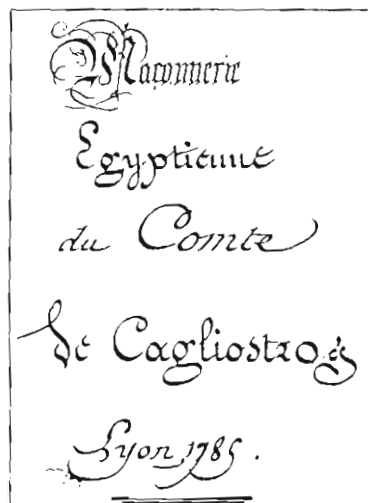 Maçonnerie
Egyptienne
du Comte
de Cagliostro
Lyon 1785.